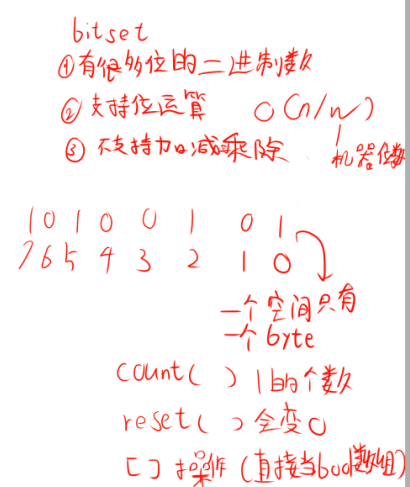 bitset
①有很多位的二进制数
②支持位运算 O(n/w)
③不支持加减乘除 机器位数
1 0 1 0 0 1 0 1
7 6 5 4 3 2 1 0
一个空间只有
一个byte
count( ) 1的个数
reset( ) 全变0
[ ]操作(直接当bool数组)